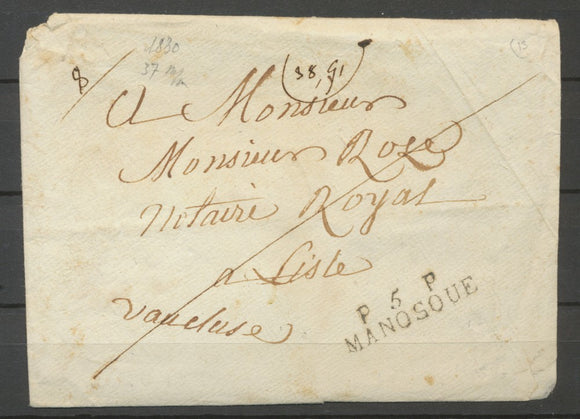 1830
37 m/m
38, 91
13
8
A Monsieur
Monsieur Roze
Notaire Royal
a Lisle
Vaucluse
P 5 P
MANOSQUE